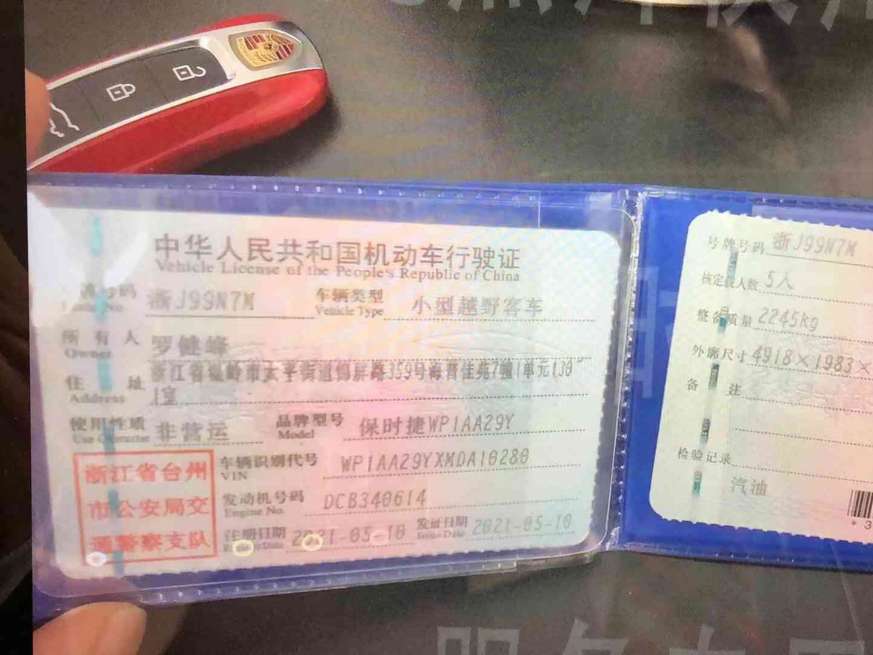 中华人民共和国机动车行驶证
Vehicle License of the People's Republic of China
号牌号码 浙J99N7M 车辆类型 小型越野客车
Plate No. Vehicle Type
所有人 罗健峰
Owner
住址 浙江省温岭市太平街道锦屏路359号海普佳苑7幢1单元130
Address 1室
使用性质 非营运 品牌型号 保时捷WP1AA29Y
Use Character Model
浙江省台州
市公安局交
通警察支队
车辆识别代号 WP1AA29YXMDA10280
VIN
发动机号码 DCB340614
Engine No.
注册日期 2021-05-10 发证日期 2021-05-10
Issue Date
号牌号码 浙J99N7M
核定载人数 5人
整备质量 2245kg
外廓尺寸 4918×1983×
备注
检验记录
汽油
*3